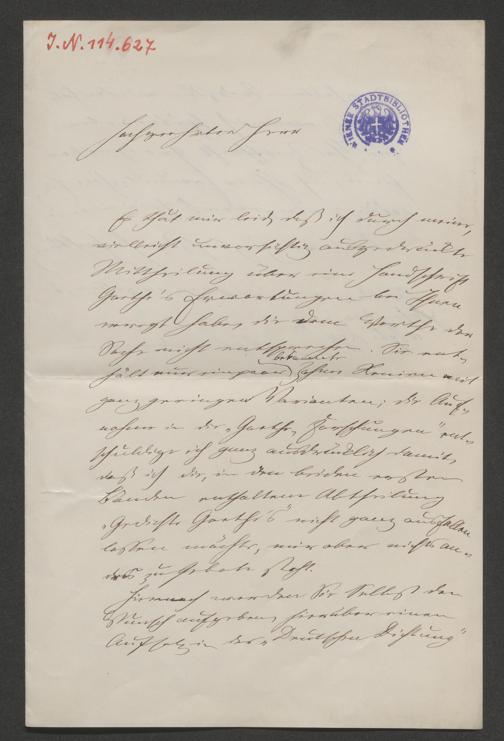 I.N. 114.627
WIENER STADTBIBLIOTHEK
Hochverehrter Herr
Es thut mir leid, daß ich durch meine,
vielleicht unvorsichtig ausgedrückte
Mittheilung über eine Handschrift
Goethe's Erwartungen bei Ihnen
erregt habe, die dem Werthe der
Sache nicht entsprechen. Sie ent-
bekannte
hält nur zahme Xenien mit
ganz geringen Varianten; die Auf-
nahme in die „Goethe-Forschungen" ent-
schuldige ich ganz ausdrücklich damit,
daß ich die, in den beiden ersten
Bänden enthaltene Abtheilung
„Gedichte Goethe's" nicht ganz ausfallen
lassen möchte, mir aber nichts an-
dres zu Gebote steht.
Hiernach werden Sie Selbst den
Wunsch aufgeben, hierüber einen
Aufsatz in der „Deutschen Dichtung"